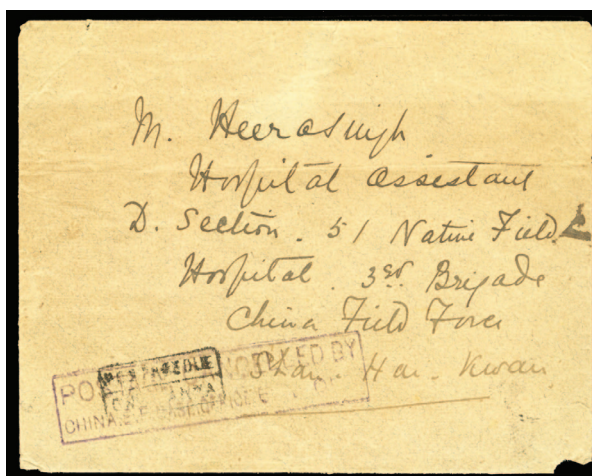 M. Heera Singh
Hospital Assistant
D. Section. 51 Native Field
Hospital. 3rd. Brigade
China Field Force
Shan. Hai. Kwan
POSTAGE DUE
NOT PAID BY
CHINA